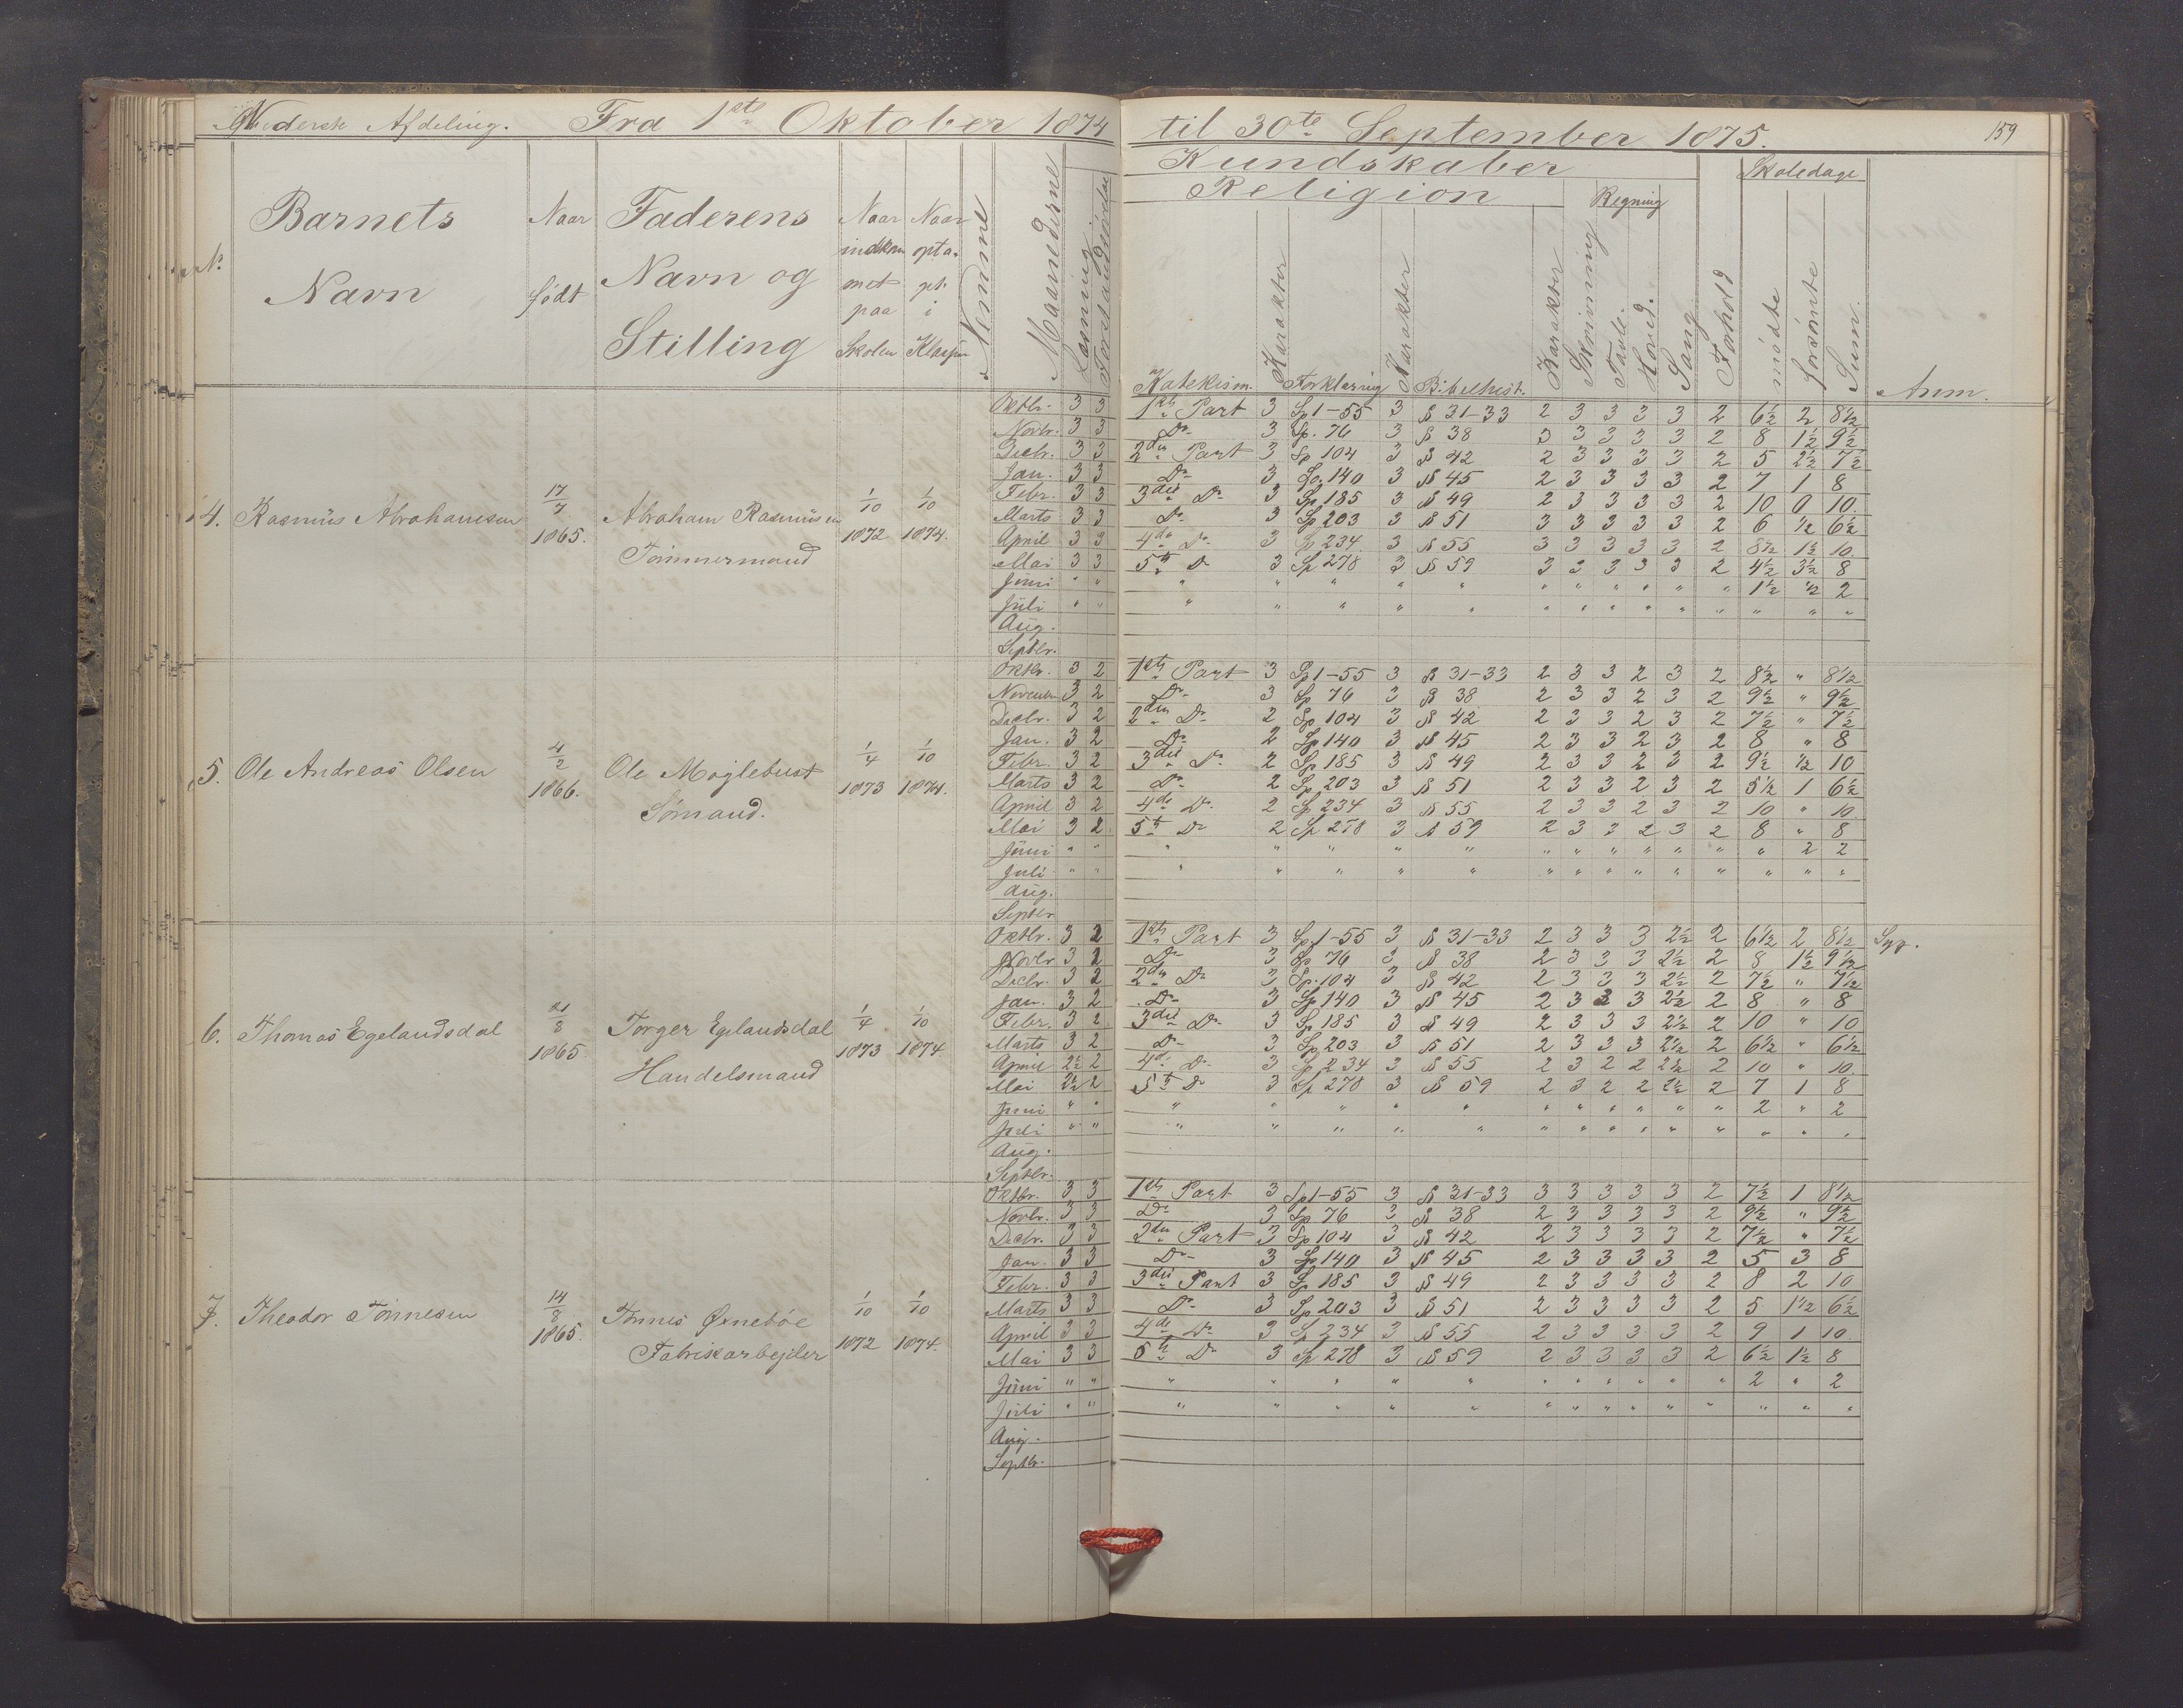 Nederste Afdeling. Fra 1ste Oktober 1874 til 30te September 1875. 159
Kundskaber Skoledage
Religion Regning
No. Barnets Navn
Naar født
Faderens Navn og Stilling
Naar indkommet paa Skolen
Naar optaget i Klassen
Nemme
Maanederne
Læsning
Forstandsøvelse
Katekism. Karakter Forklaring Karakter Bibelhist. Karakter Skrivning Tavle. Hoved. Sang Forhold mødte forsømte Sum. Anm.
4. Rasmus Abrahamsen 17/7 1865. Abraham Rasmusen Tømmermand 1/10 1872 1/10 1874.
Oktbr. 3 3 1ste Part 3 Sp 1-55 3 § 31-33 2 3 3 3 3 2 6½ 2 8½
Novbr. 3 3 Do 3 Sp. 76 3 § 38 3 3 3 3 3 2 8 1½ 9½
Decbr. 3 3 2den Part 3 Sp 104 3 § 42 2 3 3 3 3 2 5 2½ 7½
Jan. 3 3 Do 3 Sp. 140 3 § 45 2 3 3 3 3 2 7 1 8
Febr. 3 3 3die Do 3 Sp 185 3 § 49 2 3 3 3 3 2 10 0 10.
Marts 3 3 Do 3 Sp 203 3 § 51 3 3 3 3 3 2 6 ½ 6½
April 3 3 4de Do 3 Sp 234 3 § 55 3 3 3 3 3 2 8½ 1½ 10.
Mai 3 3 5te Do 3 Sp 278 3 § 59 3 3 3 3 3 2 4½ 3½ 8
Juni " " " " " " " " " " " " " 1½ ½ 2
Juli " " " " " " " " " " " " " " " "
Aug.
Septbr.
5. Ole Andreas Olsen 4/2 1866. Ole Møglebust Sømand. 1/4 1873 1/10 1874.
Oktbr. 3 2 1ste Part 3 Sp 1-55 3 § 31-33 2 3 3 2 3 2 8½ " 8½
Novembr 3 2 Do 3 Sp 76 3 § 38 2 3 3 2 3 2 9½ " 9½
Decbr. 3 2 2den Do 2 Sp 104 3 § 42 2 3 3 2 3 2 7½ " 7½
Jan. 3 2 Do 2 Sp 140 3 § 45 2 3 3 2 3 2 8 " 8
Febr. 3 2 3die Do 2 Sp 185 3 § 49 2 3 3 2 3 2 9½ ½ 10
Marts 3 2 Do 2 Sp 203 3 § 51 2 3 3 2 3 2 5½ 1 6½
April 3 2 4de Do 2 Sp 234 3 § 55 2 3 3 2 3 2 10 " 10.
Mai 3 2 5te Do 2 Sp 278 3 § 59 2 3 3 2 3 2 8 " 8
Juni " " " " " " " " " " " " " " 2 2
Juli " " " " " " " " " " " " " " " "
Aug.
Septbr
6. Thomas Egelandsdal 21/8 1865 Torger Egelandsdal Handelsmand 1/4 1873 1/10 1874
Oktbr. 3 2 1ste Part 3 Sp. 1-55 3 § 31-33 2 3 3 3 2½ 2 6½ 2 8½ Syg.
Novbr 3 2 Do 3 Sp 76 3 § 38 2 3 3 3 2½ 2 8 1½ 9½
Decbr. 3 2 2den Do 3 Sp. 104 3 § 42 2 3 3 3 2½ 2 7½ " 7½
Jan. 3 2 Do 3 Sp 140 3 § 45 2 3 3 3 2½ 2 8 " 8
Febr. 3 2 3die Do 3 Sp 185 3 § 49 2 3 3 3 2½ 2 10 " 10
Marts 3 2 Do 3 Sp 203 3 § 51 2 3 3 3 2½ 2 6½ " 6½
April 2½ 2 4de Do 3 Sp 234 3 § 55 2 3 2 2 2½ 2 10 " 10.
Mai 2½ 2 5te Do 3 Sp 278 3 § 59 2 3 2 2 2½ 2 7 1 8
Juni " " " " " " " " " " " " " 2 " 2
Juli " " " " " " " " " " " " " " " "
Aug.
Septbr.
7. Theodor Tønnesen 14/8 1865. Tønnes Øxnebøe Fabrikarbejder 1/10 1872 1/10 1874.
Oktbr. 3 3 1ste Part 3 Sp 1-55 3 § 31-33 3 3 3 3 3 2 7½ 1 8½
Novbr. 3 3 Do 3 Sp 76 3 § 38 2 3 3 3 3 2 9½ " 9½
Decbr. 3 3 2den Part 3 Sp 104 3 § 42 2 3 3 3 3 2 7½ " 7½
Jan. 3 3 Do 3 Sp 140 3 § 45 2 3 3 3 3 2 5 3 8
Febr. 3 3 3die Part 3 Sp 185 3 § 49 2 3 3 3 3 2 8 2 10
Marts 3 3 Do 3 Sp 203 3 § 51 2 3 3 3 3 2 5 1½ 6½
April 3 3 4de Do 3 Sp 234 3 § 55 2 3 3 3 3 2 9 1 10.
Mai 3 3 5te Do 3 Sp 278 3 § 59 2 3 3 3 3 2 6½ 1½ 8
Juni " " " " " " " " " " " " " 2 " 2
Juli " " " " " " " " " " " " " " " "
Aug.
Septbr.